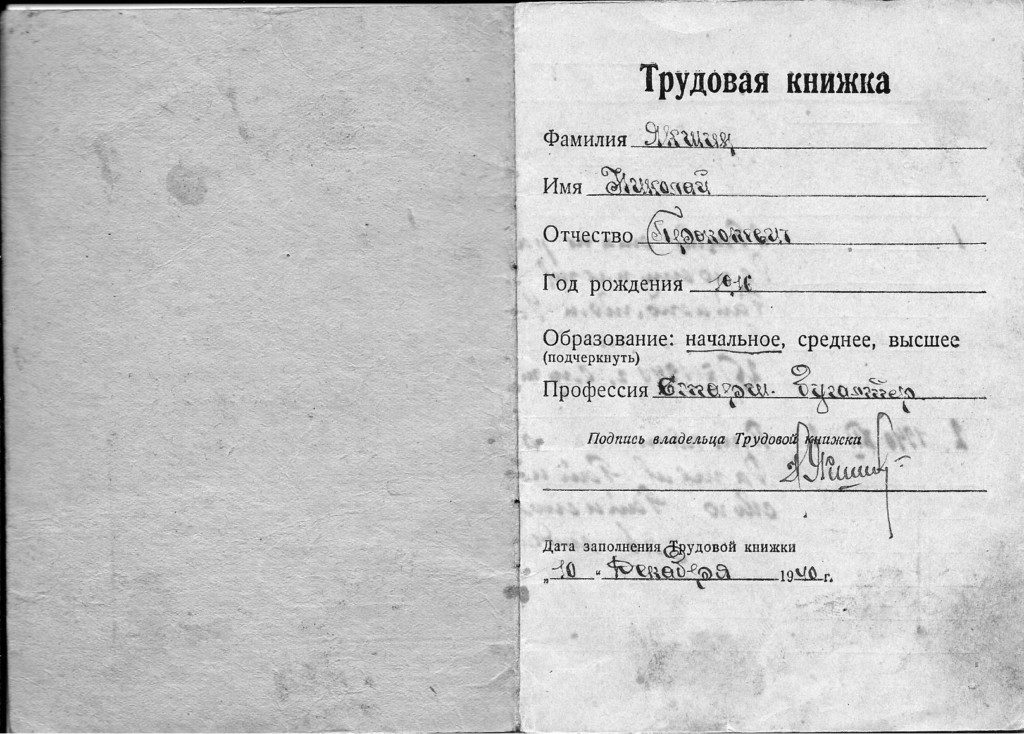 Трудовая книжка
Фамилия Якшиц
Имя Николай
Отчество Прокопьевич
Год рождения 1916
Образование: начальное, среднее, высшее
(подчеркнуть)
Профессия Старш. Бугалтер
Подпись владельца Трудовой книжки
Дата заполнения Трудовой книжки
„10“ Декабря 1940 г.